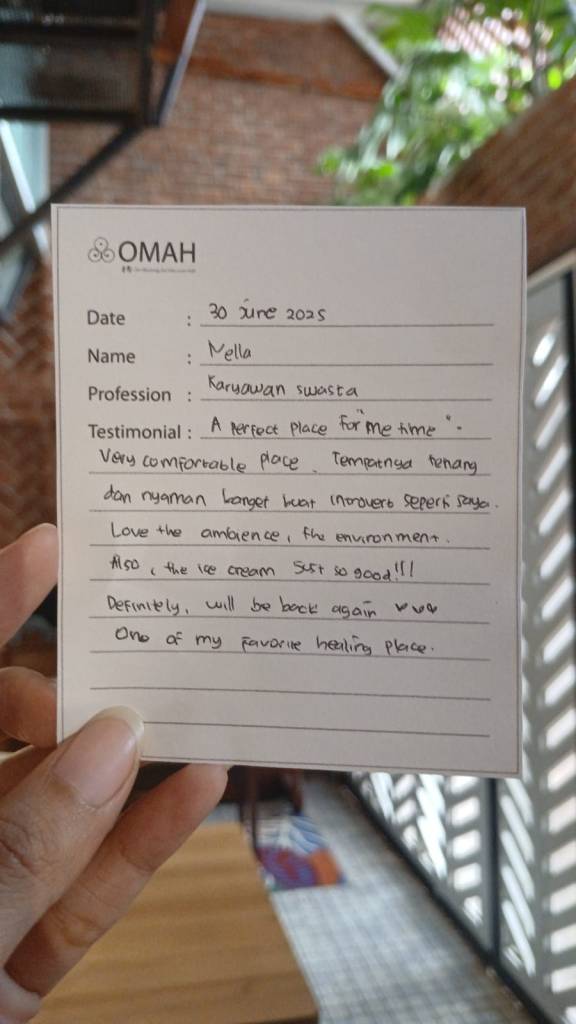 OMAH
Date : 30 June 2025
Name : Nella
Profession : Karyawan swasta
Testimonial : A perfect place for "me time".
Very comfortable place. Tempatnya tenang
dan nyaman banget buat introvert seperti saya.
Love the ambience, the environment.
Also, the ice cream just so good!!!
Definitely, will be back again ♥♥♥
One of my favorite healing place.